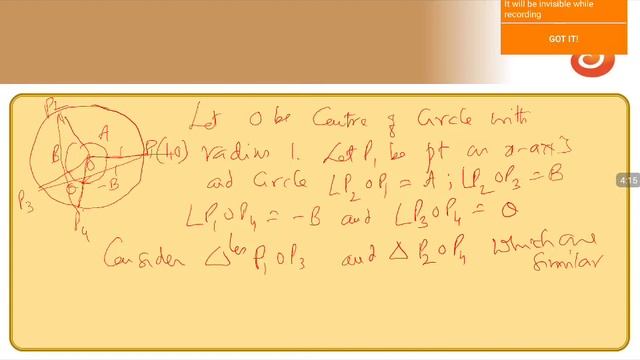 It will be invisible while
recording
GOT IT!
4:15
P2
A
B
O
P1(1,0)
-B
P3
P4
Let O be Centre of Circle with
radius 1. Let P1 be pt on x-axis
and Circle ∠P2OP1 = A ; ∠P2OP3 = B
∠P1OP4 = -B and ∠P3OP4 = θ
Consider Δles P1OP3 and Δ P2OP4 which are
similar